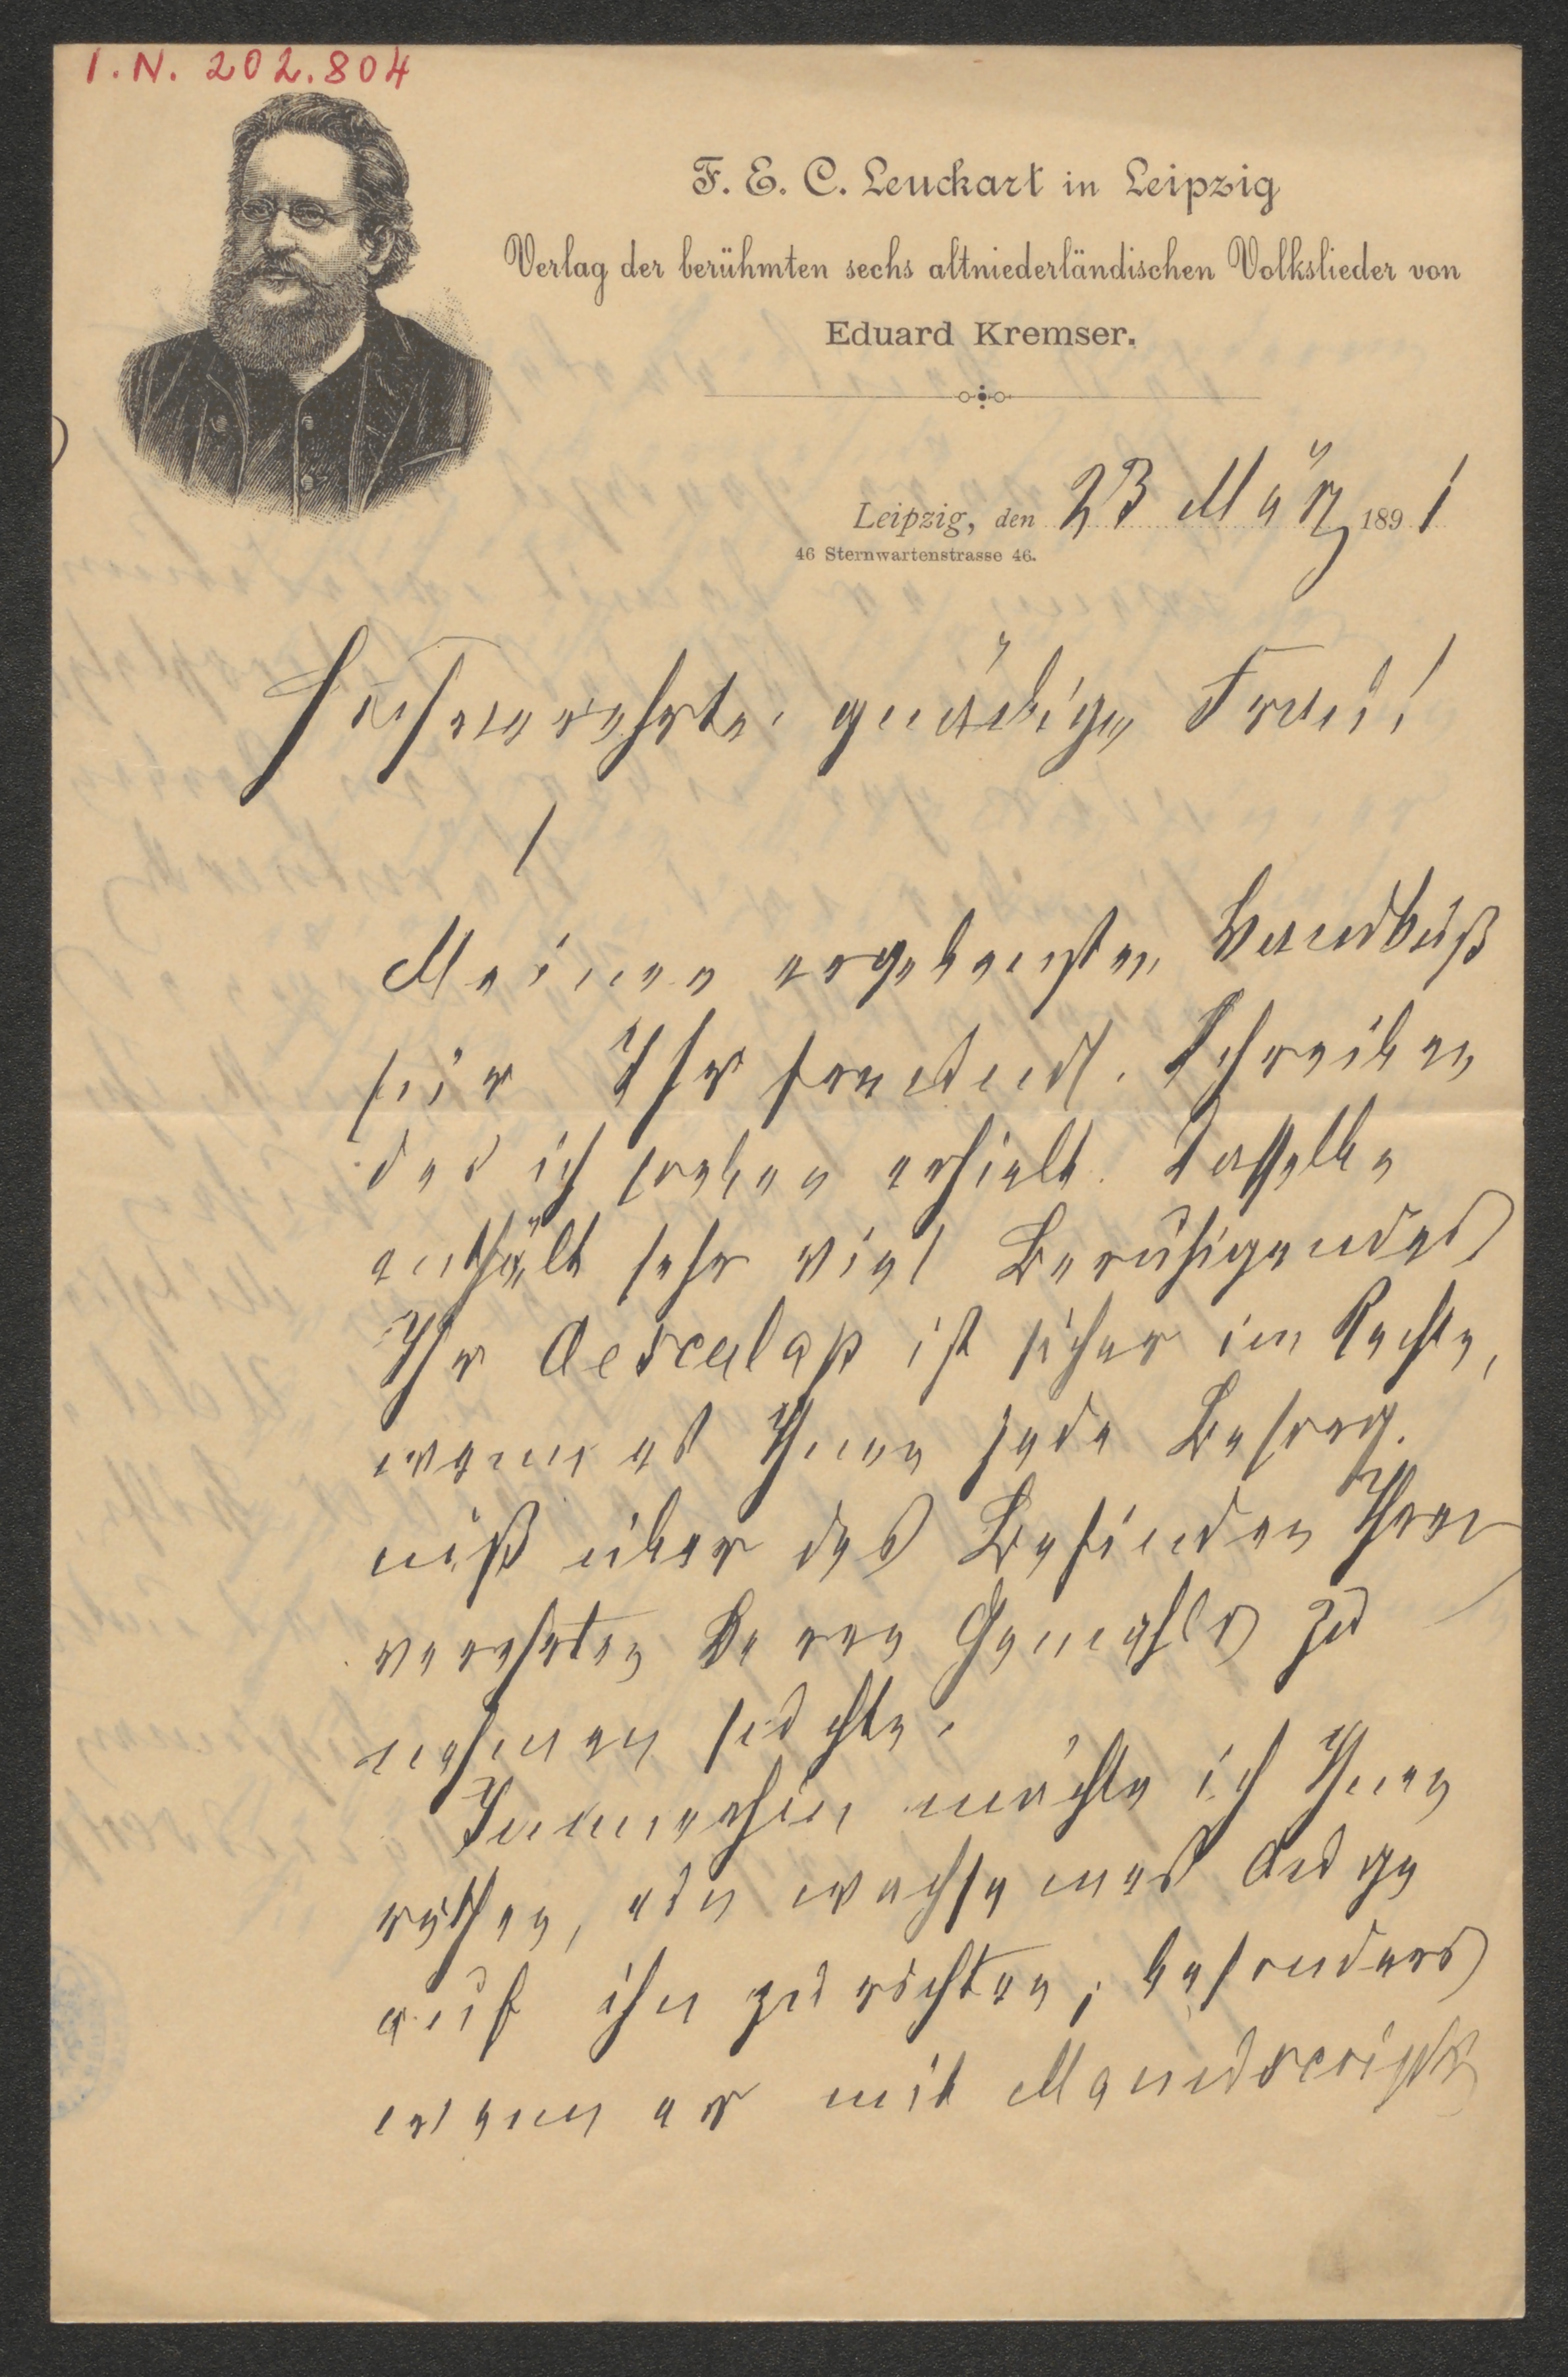 I.N. 202.804
F. E. C. Leuckart in Leipzig
Verlag der berühmten sechs altniederländischen Volkslieder von
Eduard Kremser.
Leipzig, den 23 März 1891
46 Sternwartenstrasse 46.
Hochverehrte gnädige Frau!
Meinen ergebensten Handkuß
für Ihr freundl. Schreiben
das ich soeben erhielt. Dasselbe
enthält sehr viel Beruhigendes
Ihr Aesculap ist sicher im Rechte,
wenn er Ihnen jede Besorg-
niß über das Befinden Ihres
verehrten Herrn Gemahls zu
nehmen suchte.
Immerhin möchte ich Ihnen
rathen, ein wachsames Auge
auf ihn zu richten, besonders
wenn er mit Manuscript